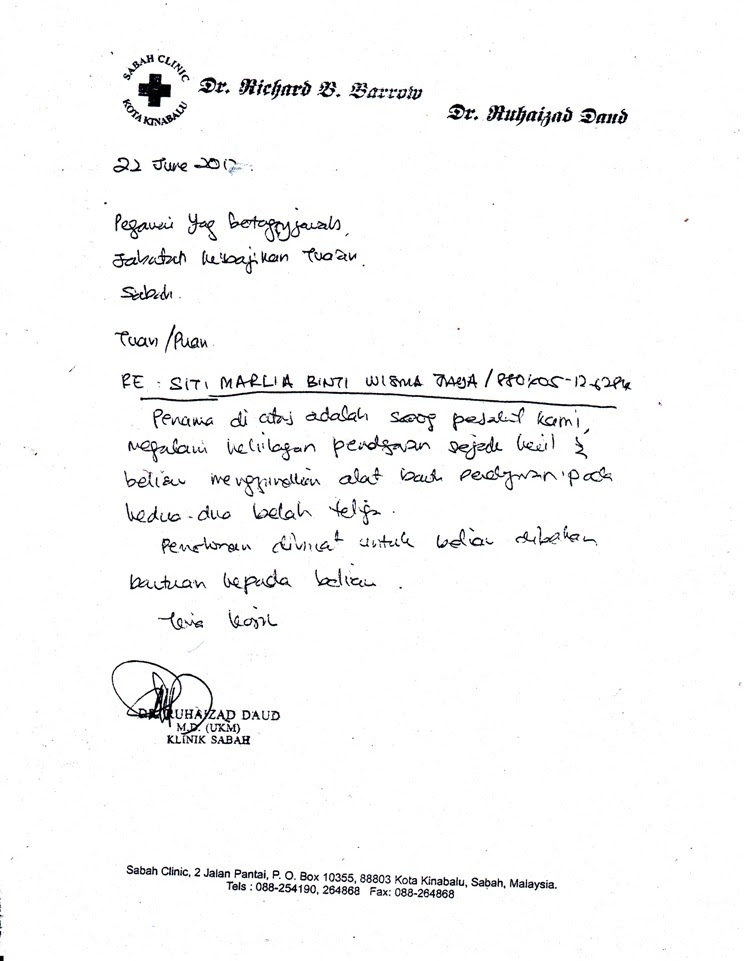 SABAH CLINIC
KOTA KINABALU
Dr. Richard B. Barrow
Dr. Ruhaizad Daud
22 June 2012
Pegawai Yag
Jabatan Kebajikan
Sabah.
Tuan/Puan
RE : SITI MARLIA BINTI WISMA
Penama di atas adalah seorg pesakit kami,
megalami kehilagan pendgaran sejak kecil &
beliau menggunakan alat bantu pendgaran pada
kedua-dua belah teliga.
Pertolongan diminta untuk beliau
bantuan kepada beliau.
Terima kasih
DR. RUHAIZAD DAUD
M.D. (UKM)
KLINIK SABAH
Sabah Clinic, 2 Jalan Pantai, P. O. Box 10355, 88803 Kota Kinabalu, Sabah, Malaysia.
Tels : 088-254190, 264868 Fax: 088-264868